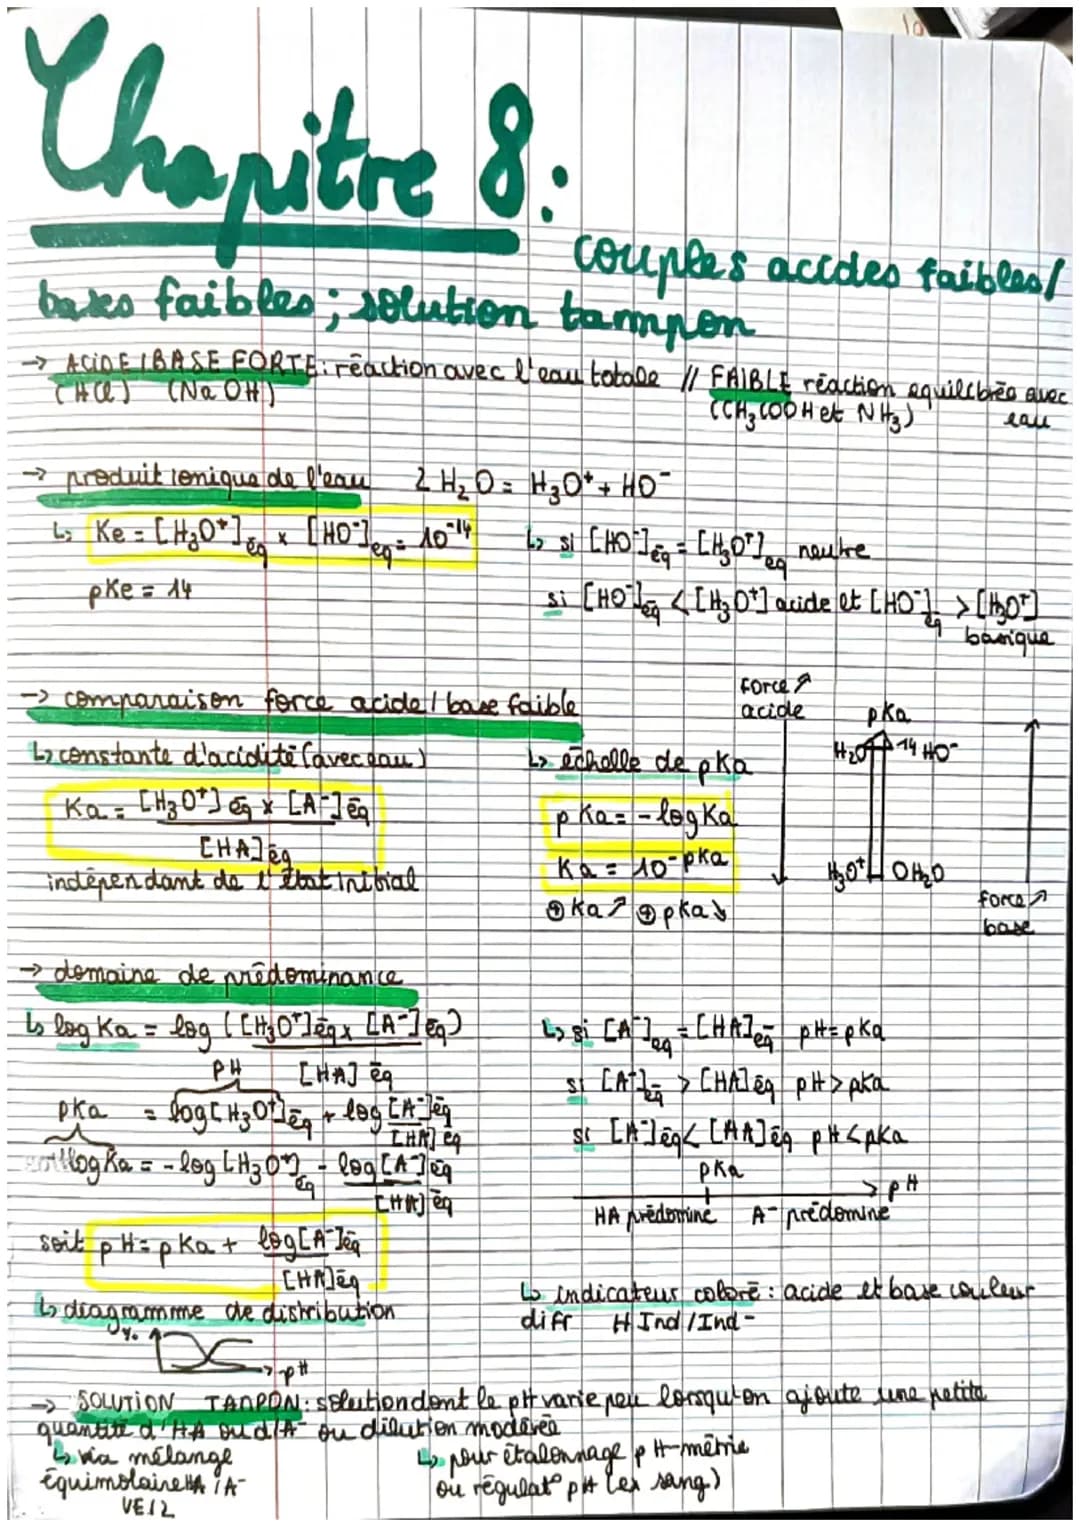 Chapitre 8 :
couples acides faibles/
bases faibles ; solution tampon
→ ACIDE / BASE FORTE : réaction avec l'eau totale // FAIBLE réaction équilibrée avec
(HCl) (NaOH) (CH₃COOH et NH₃) eau
→ produit ionique de l'eau 2 H₂O = H₃O⁺ + HO⁻
↳ Ke = [H₃O⁺]éq × [HO⁻]éq = 10⁻¹⁴ ↳ si [HO⁻]éq = [H₃O⁺]éq neutre
pKe = 14 si [HO⁻]éq < [H₃O⁺] acide et [HO⁻]éq > [H₃O⁺]
basique
→ comparaison force acide / base faible
↳ constante d'acidité (avec eau)
Ka = [H₃O⁺]éq × [A⁻]éq
[HA]éq
indépendant de l'état initial
↳ échelle de pKa
pKa = - log Ka
Ka = 10⁻ᵖᴷᵃ
⊕ Ka ↗ ⊕ pKa ↘
force ↗
acide
pKa
H₂O 14 HO⁻
H₃O⁺ 0 H₂O
force ↗
base
→ domaine de prédominance
↳ log Ka = log ([H₃O⁺]éq × [A⁻]éq)
[HA]éq
pH
pKa = log [H₃O⁺]éq + log [A⁻]éq
[HA]éq
log Ka = - log [H₃O⁺]éq - log [A⁻]éq
[HA]éq
soit pH = pKa + log [A⁻]éq
[HA]éq
↳ diagramme de distribution
% → pH
↳ si [A⁻]éq = [HA]éq pH = pKa
si [A⁻]éq > [HA]éq pH > pKa
si [A⁻]éq < [HA]éq pH < pKa
pKa
→ pH
HA prédomine A⁻ prédomine
↳ indicateur coloré : acide et base couleur
difr H Ind / Ind -
→ SOLUTION TAMPON : solution dont le pH varie peu lorsqu'on ajoute une petite
quantité d'HA ou d'A⁻ ou dilution modérée
↳ via mélange
équimolaire HA / A⁻
VE/2
↳ pour étalonnage pH-métrie
ou régulat° pH (ex sang)